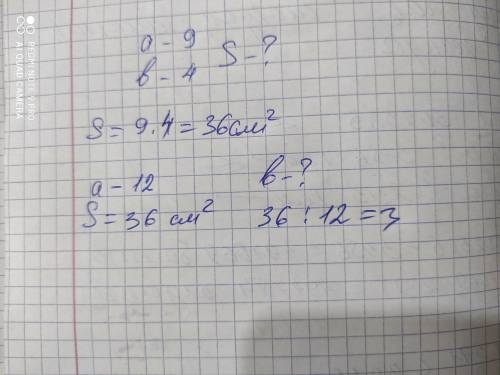 a - 9
b - 4 S - ?
S = 9 · 4 = 36 см²
a - 12 b - ?
S = 36 см² 36 : 12 = 3
REDMI NOTE 8 PRO
AI QUAD CAMERA